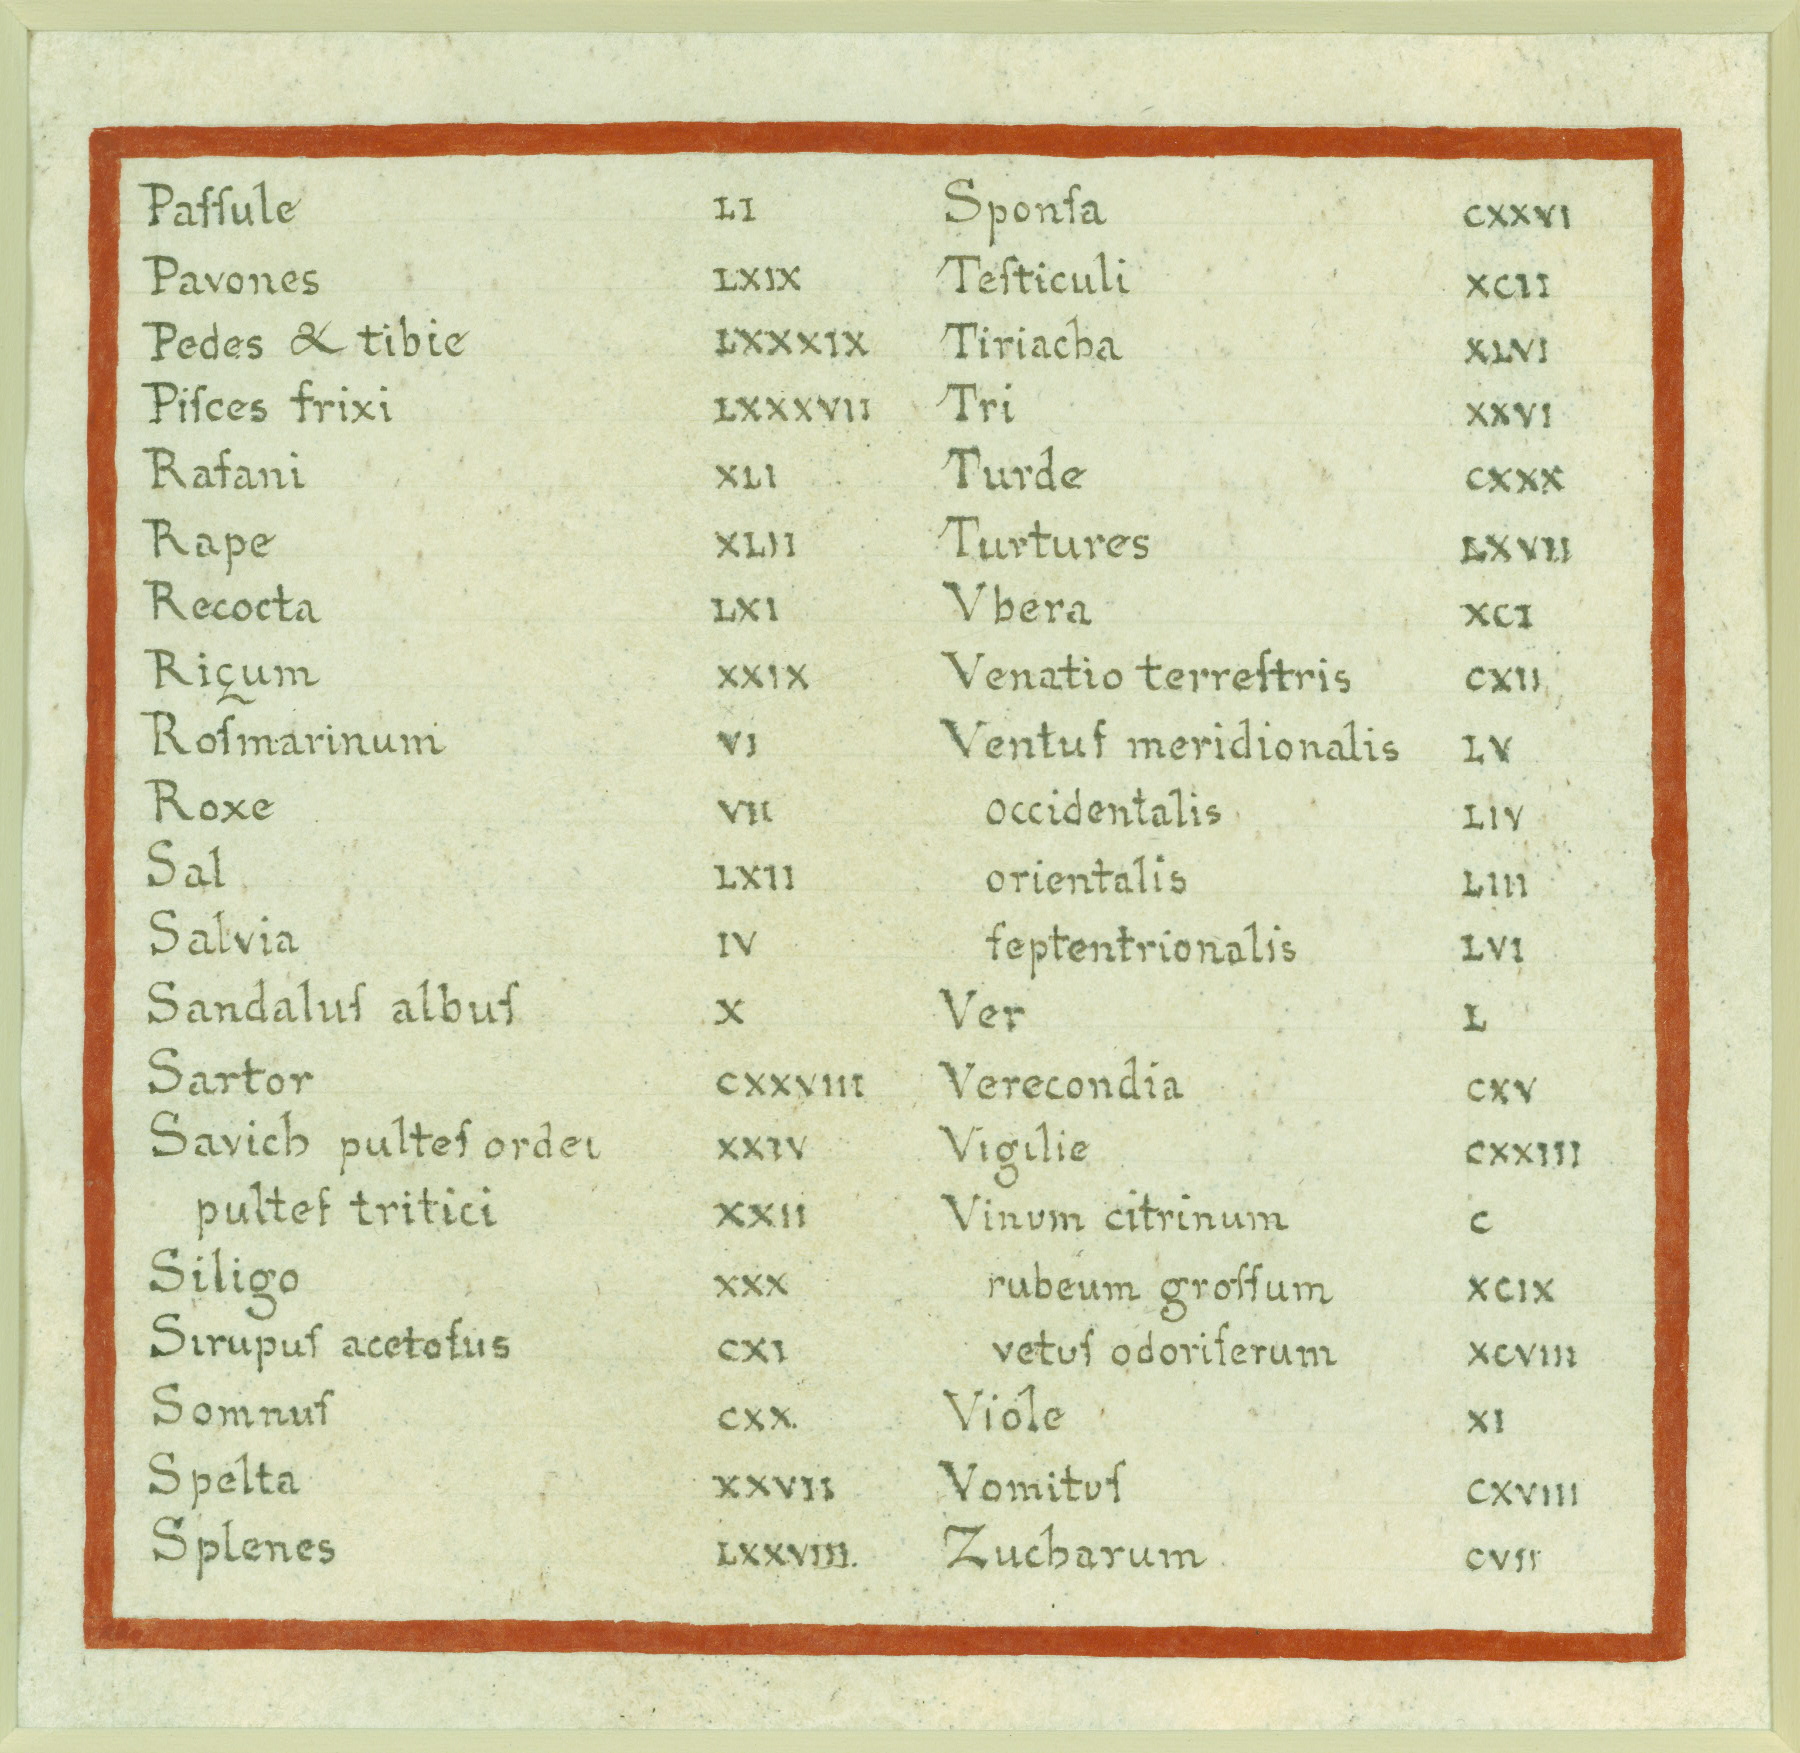 Paſſule LI
Pavones LXIX
Pedes & tibie LXXXIX
Piſces frixi LXXXVII
Rafani XLI
Rape XLII
Recocta LXI
Riçum XXIX
Roſmarinum VI
Roxe VII
Sal LXII
Salvia IV
Sandaluſ albuſ X
Sartor CXXVIII
Savich pulteſ ordei XXIV
pulteſ tritici XXII
Siligo XXX
Sirupuſ acetoſus CXI
Somnuſ CXX.
Spelta XXVII
Splenes LXXVIII.
Sponſa CXXVI
Teſticuli XCII
Tiriacha XLVI
Tri XXVI
Turde CXXX
Turtures LXVII
Vbera XCI
Venatio terreſtris CXII
Ventuſ meridionalis LV
occidentalis LIV
orientalis LIII
ſeptentrionalis LVI
Ver L
Verecondia CXV
Vigilie CXXIII
Vinvm citrinum C
rubeum groſſum XCIX
vetvſ odoriferum XCVIII
Viole XI
Vomitvſ CXVIII
Zucharum CVII